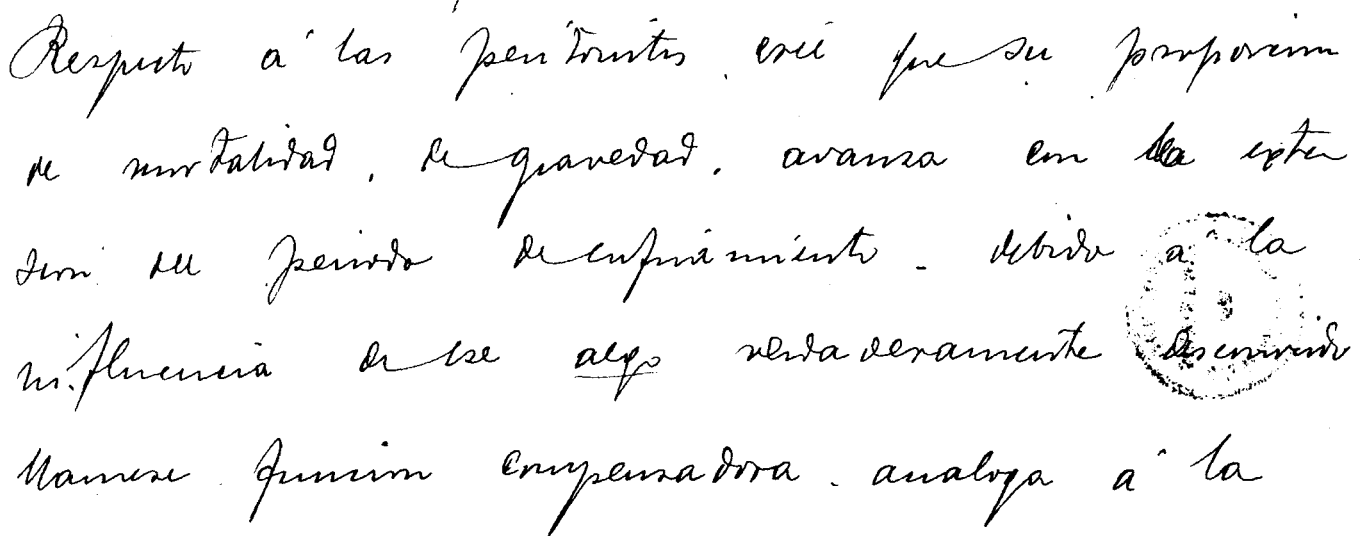 Respecto á las peritonitis creé que su proporcion
de mortalidad, de gravedad, avanza con la exten
sion del periodo de enfriamiento - debido á la
influencia de ese algo verdaderamente desconocido
llamese funcion compensadora - analoga á la